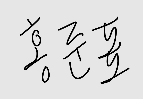 홍준표